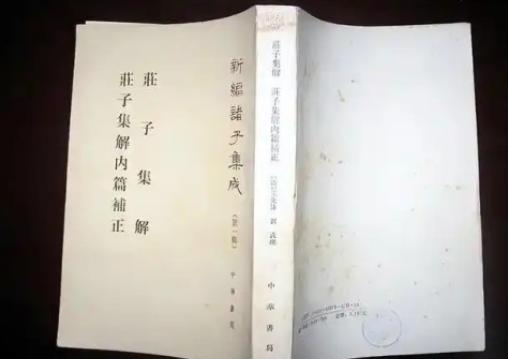 新編諸子集成
(第一輯)
莊子集解
莊子集解内篇補正
中華書局
莊子集解 莊子集解内篇補正
中華書局